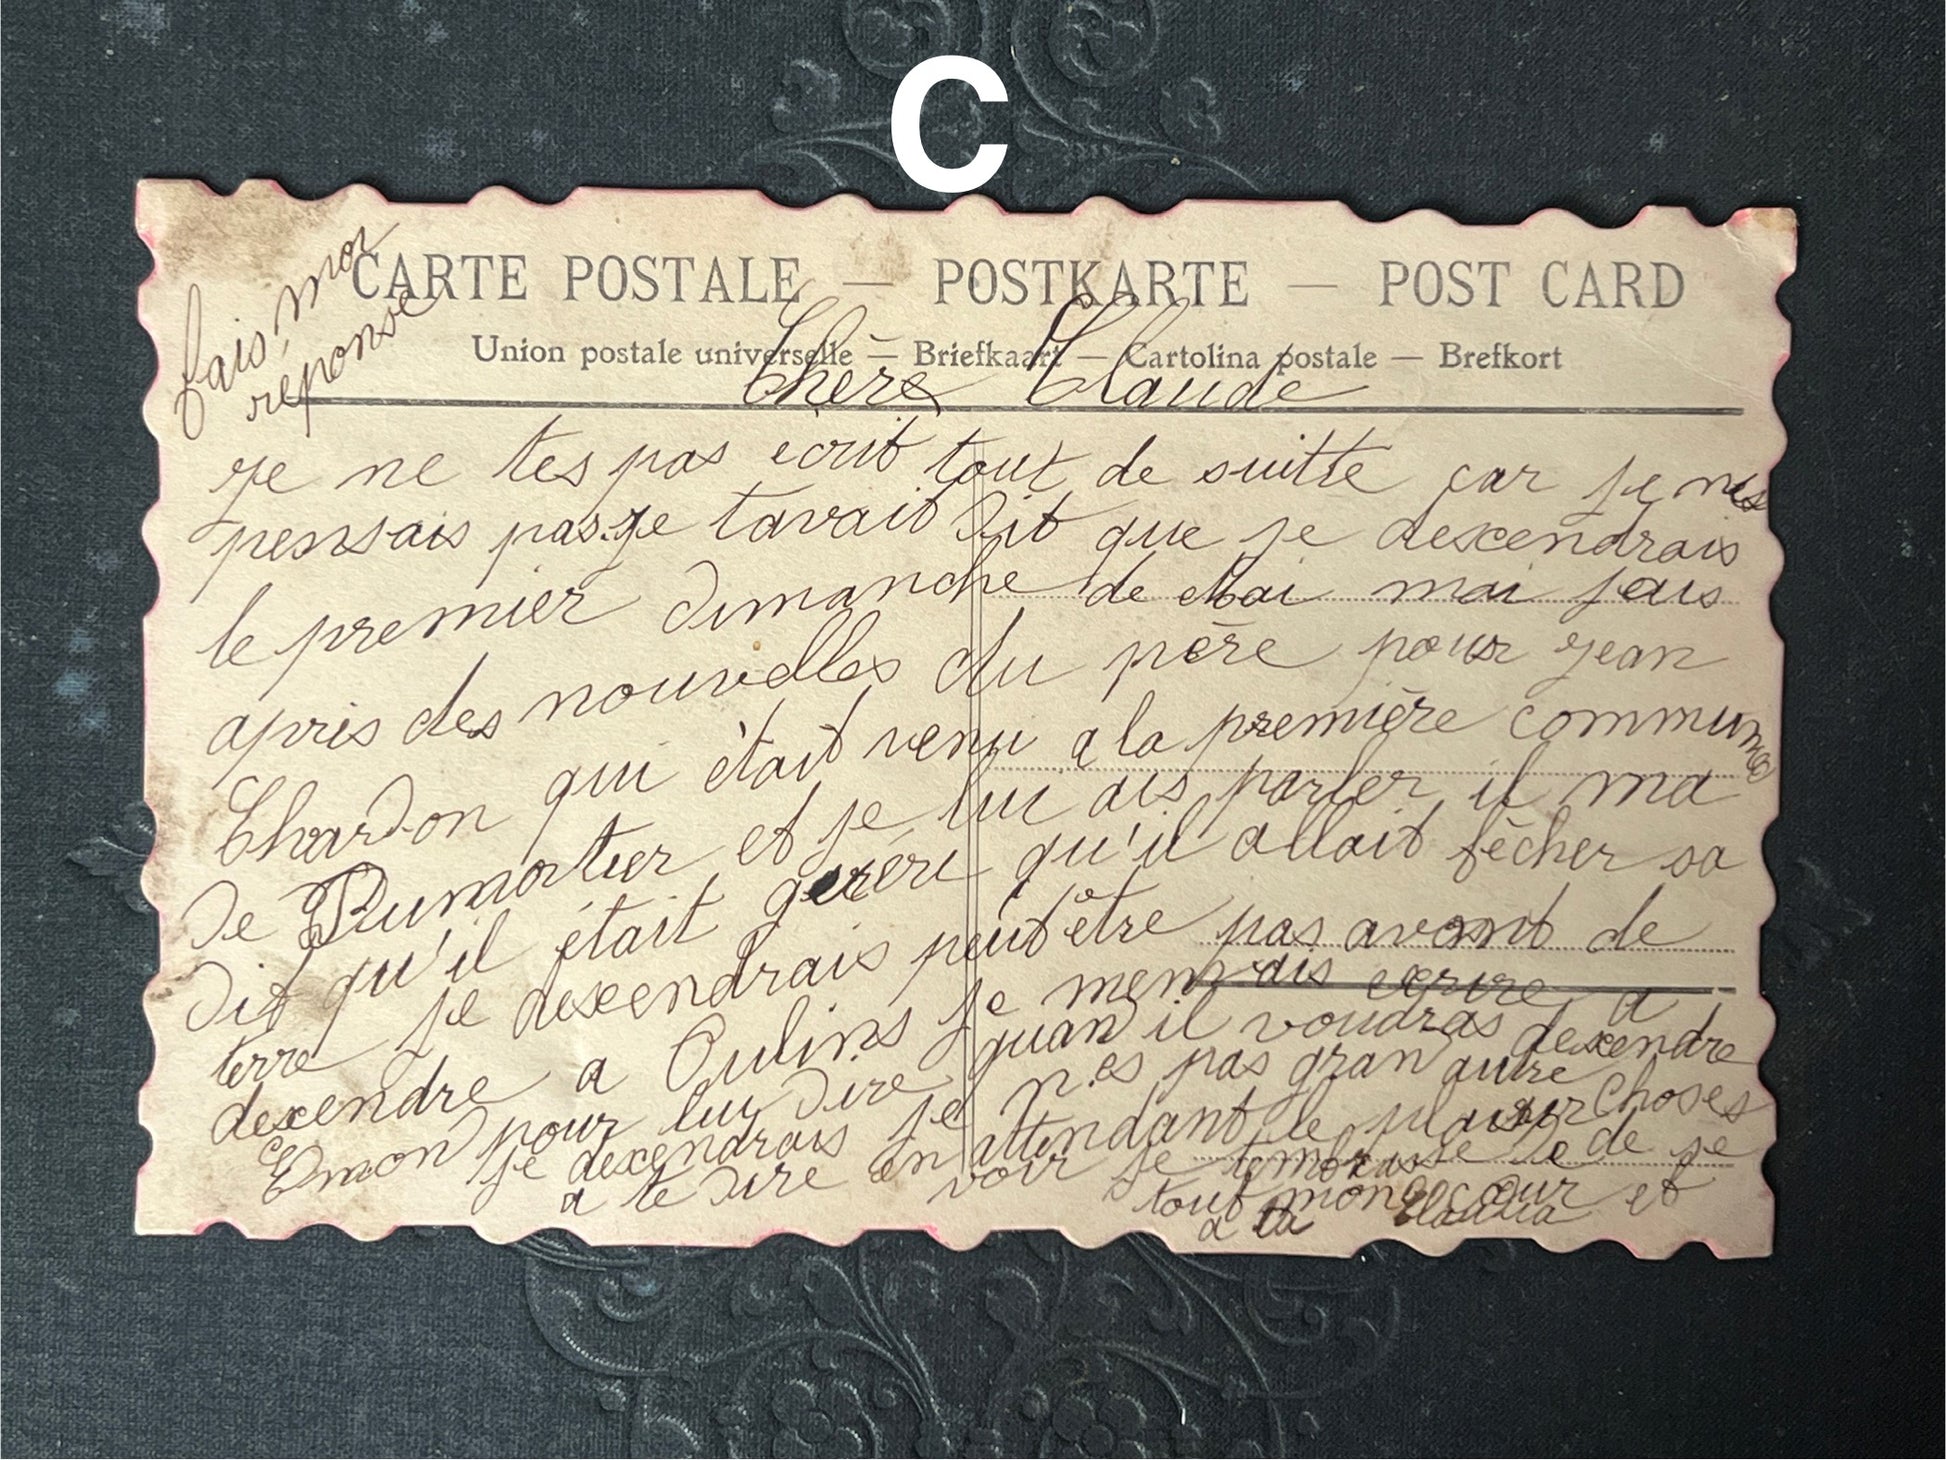 C
CARTE POSTALE — POSTKARTE — POST CARD
Union postale universelle — Briefkaart — Cartolina postale — Brefkort
fais moi
réponse
Chère Claude
je ne tes pas écrit tout de suitte car je ne
pensais pas. je tavait dit que je descendrais
le premier dimanche de Mai mai jais
apris des nouvelles du père pour jean
Chardon qui était venu a la première commune
de Rumortier et je lui ais parler il ma
dit qu'il était guéri qu'il allait bêcher sa
terre je descendrais peut être pas avant de
descendre a Oulins je men vais écrire a
Emon pour lui dire quand il voudras descendre
je descendrais je n'es pas gran autre choses
a te dire en attendant le plaisir de se
voir je tembrasse de
tout mon cœur et
a ta Claudia